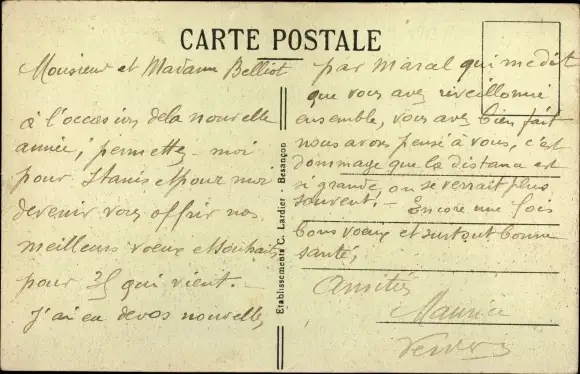 CARTE POSTALE
Monsieur et Madame Belliot
à l'occasion de la nouvelle
année, permettez-moi
pour Stanis et pour moi
de venir vous offrir nos
meilleurs voeux et souhaits
pour 35 qui vient.-
J'ai eu de vos nouvelles
Etablissements C. Lardier - Besançon
par Marcel qui me dit
que vous avez réveillonné
ensemble, vous avez bien fait
nous avons pensé à vous, c'est
dommage que la distance est
si grande, on se verrait plus
souvent.- Encore une fois
bons voeux et surtout bonne
santé,
Amitiés
Maurice